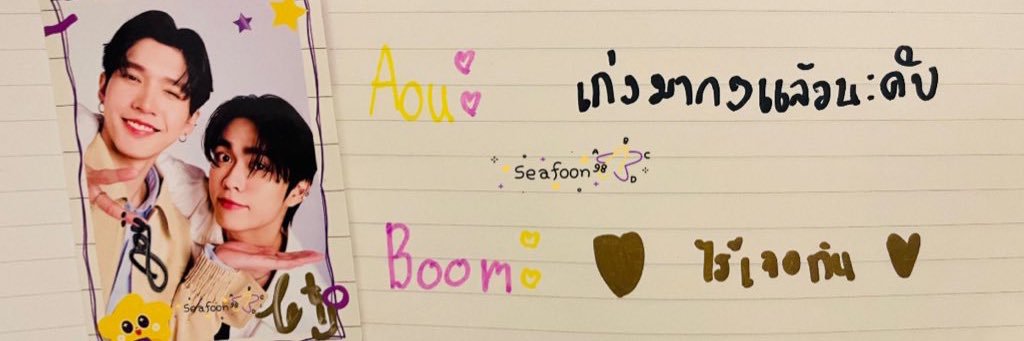 Aou: เก่งมากๆแล้วนะคับ
seafoon98 A B C D
Boom: ไว้เจอกัน
seafoon98